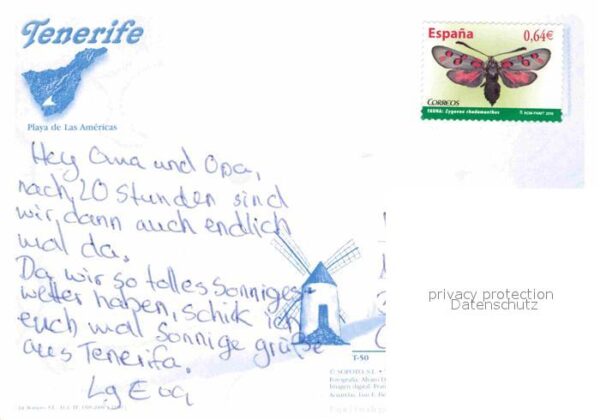 Tenerife
Playa de Las Américas
España
0,64€
CORREOS
FAUNA: Zygaena rhadamanthus
Hey Oma und Opa,
nach 20 Stunden sind
wir dann auch endlich
mal da.
Da wir so tolles Sonniges
wetter haben, schik ich
euch mal Sonnige grüße
aus Tenerifa.
Lg
T-50
privacy protection
Datenschutz